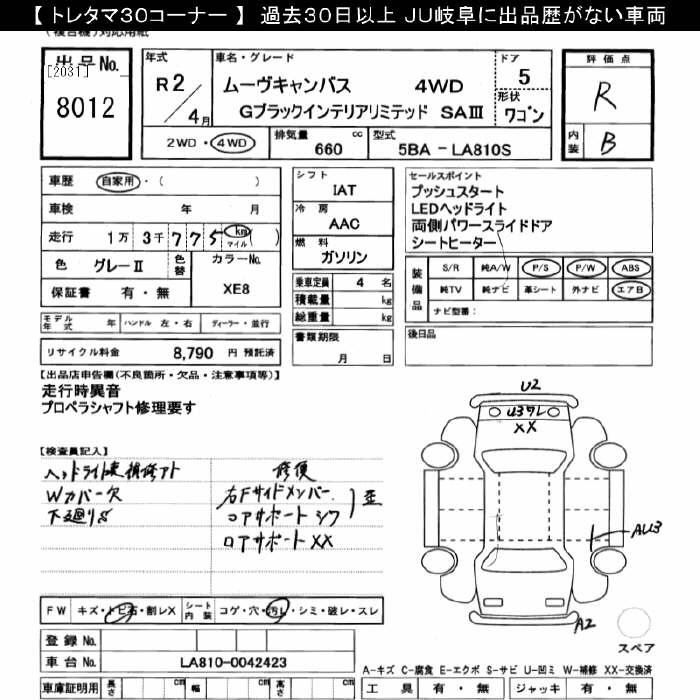 【 トレタマ30コーナー 】 過去30日以上 JU岐阜に出品歴がない車両
出品No.
[2031]
8012
年式
R2/4月
車名・グレード
ムーヴキャンバス 4WD
Gブラックインテリアリミテッド SAⅢ
ドア
5
形状
ワゴン
2WD・4WD
排気量
660
cc
型式
5BA - LA810S
評価点
R
内装
B
車歴 自家用・( )
車検 年 月
走行 1万 3千 7 7 5 km マイル ( )
色 グレーⅡ
色替
カラーNo.
XE8
保証書 有・無
モデル年式 年 ハンドル 左・右 ディーラー・並行
リサイクル料金 8,790 円 預託済
シフト
IAT
冷房
AAC
燃料
ガソリン
乗車定員 4 名
積載量 kg
総重量 kg
書類期限
月 日
セールスポイント
プッシュスタート
LEDヘッドライト
両側パワースライドドア
シートヒーター
装備品
S/R 純A/W P/S P/W ABS
純TV 純ナビ 革シート 外ナビ エアB
ナビ型番:
後日品
【出品店申告欄(不良箇所・欠品・注意事項等)】
走行時異音
プロペラシャフト修理要す
【検査員記入】
Wカバー欠
下廻りS
修復
右Fサイドメンバー
コアサポート シワ
歪
ロアサポート XX
U2
XX
AU3
A2
スペア
FW キズ・トビ石・割レX
シート内装 コゲ・穴・汚レ・シミ・破レ・スレ
登録No.
車台No. LA810-0042423
車庫証明用 長さ cm 幅 cm 高さ cm
A-キズ C-腐食 E-エクボ S-サビ U-凹ミ W-補修 XX-交換済
工具 有・無 ジャッキ 有・無